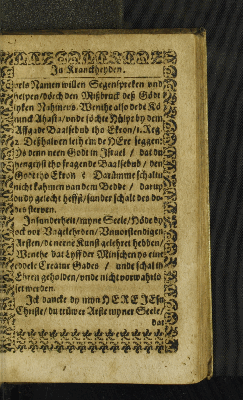 In Kranckheyden.
sels Namen willen Segenspreken vnd
helpen / dörch den Mißbruck deß Göde
lyken Nahmens. Wenthe also de de Kö
ninck Ahasia / vnde söchte Hülpe by dem
Affgade Baalsebub tho Ekron / 2. Reg
1. Deßhaluen leth em de HEre seggen:
Ys denn neen Godt in Israel / dat du
hengeyst tho fragende Baalsebub / den
Godt tho Ekron? Darümme schaltu
nicht kahmen van dem Bedde / darup
dou dy gelecht heffst / sunder schalt des do-
des steruen.
Insunderheit / myne Seele / Höde dy
ock vor Vngelehrden / Vnuorstendigen
Arsten / de nerne Kunst gelehret hebben /
Wenthe dat Lyff der Minschen ys eine
eddele Creatur Gades / vnde schal in
Ehren geholden / vnde nicht vorwahrlo
set werden.
Ick dancke dy myn HERE JEsu
Christe / du trüwer Arste myner Seele /
dat